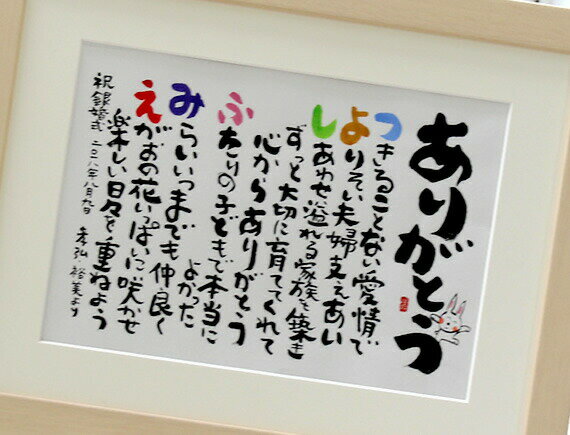 ありがとう
つきることない愛情で
よりそい夫婦支えあい
しあわせ溢れる家族を築き
ずっと大切に育ててくれて
心からありがとう
ふたりの子どもで本当に
よかった
みらいいつまでも仲良く
えがおの花いっぱいに咲かせ
楽しい日々を重ねよう
祝銀婚式 二〇一八年八月九日 孝弘 裕美より